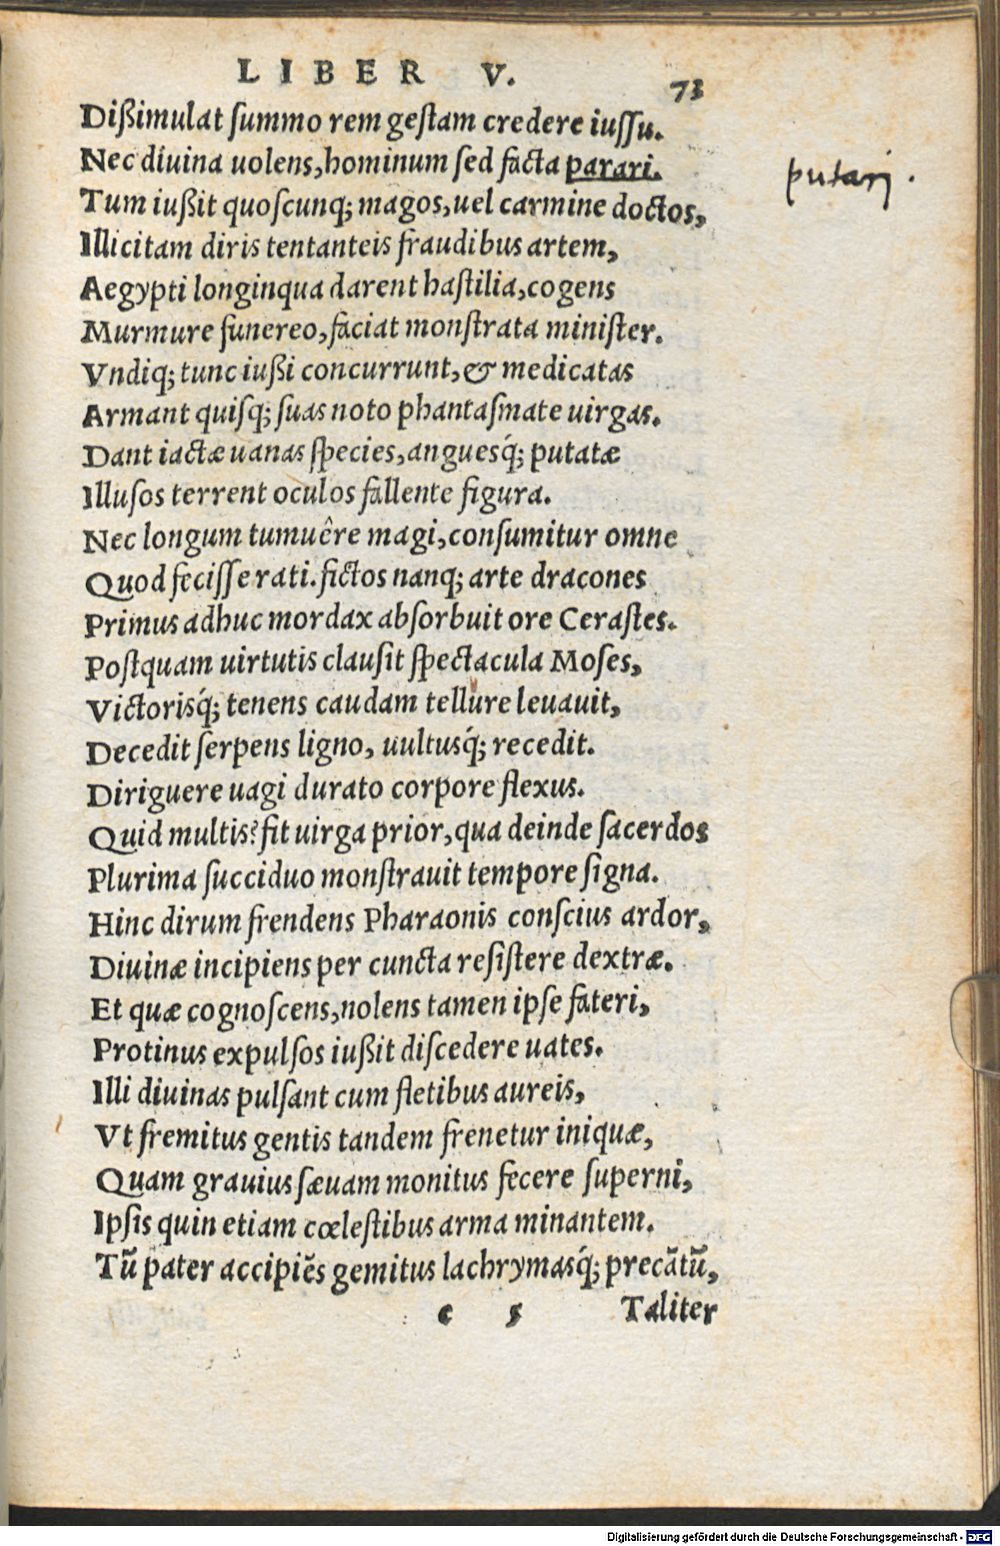 LIBER V. 73
Dißimulat ſummo rem geſtam credere iuſſu.
Nec diuina uolens, hominum ſed facta parari.
putarj.
Tum iußit quoſcunq; magos, uel carmine doctos,
Illicitam diris tentanteis fraudibus artem,
Aegypti longinqua darent haſtilia, cogens
Murmure funereo, faciat monſtrata miniſter.
Vndiq; tunc iußi concurrunt, & medicatas
Armant quiſq; ſuas noto phantaſmate uirgas.
Dant iactæ uanas ſpecies, anguesq́; putatæ
Illuſos terrent oculos fallente figura.
Nec longum tumuêre magi, conſumitur omne
Quod feciſſe rati. fictos nanq; arte dracones
Primus adhuc mordax abſorbuit ore Ceraſtes.
Poſtquam uirtutis clauſit ſpectacula Moſes,
Victorisq́; tenens caudam tellure leuauit,
Decedit ſerpens ligno, uultusq́; recedit.
Diriguere uagi durato corpore flexus.
Quid multis? fit uirga prior, qua deinde ſacerdos
Plurima ſucciduo monſtrauit tempore ſigna.
Hinc dirum frendens Pharaonis conſcius ardor,
Diuinæ incipiens per cuncta reſiſtere dextræ.
Et quæ cognoſcens, nolens tamen ipſe fateri,
Protinus expulſos iußit diſcedere uates.
Illi diuinas pulſant cum fletibus aureis,
Vt fremitus gentis tandem frenetur iniquæ,
Quam grauius ſæuam monitus fecere ſuperni,
Ipſis quin etiam cœleſtibus arma minantem.
Tū pater accipiēs gemitus lachrymasq́; precātū,
e 5 Taliter
Digitalisierung gefördert durch die Deutsche Forschungsgemeinschaft - DFG